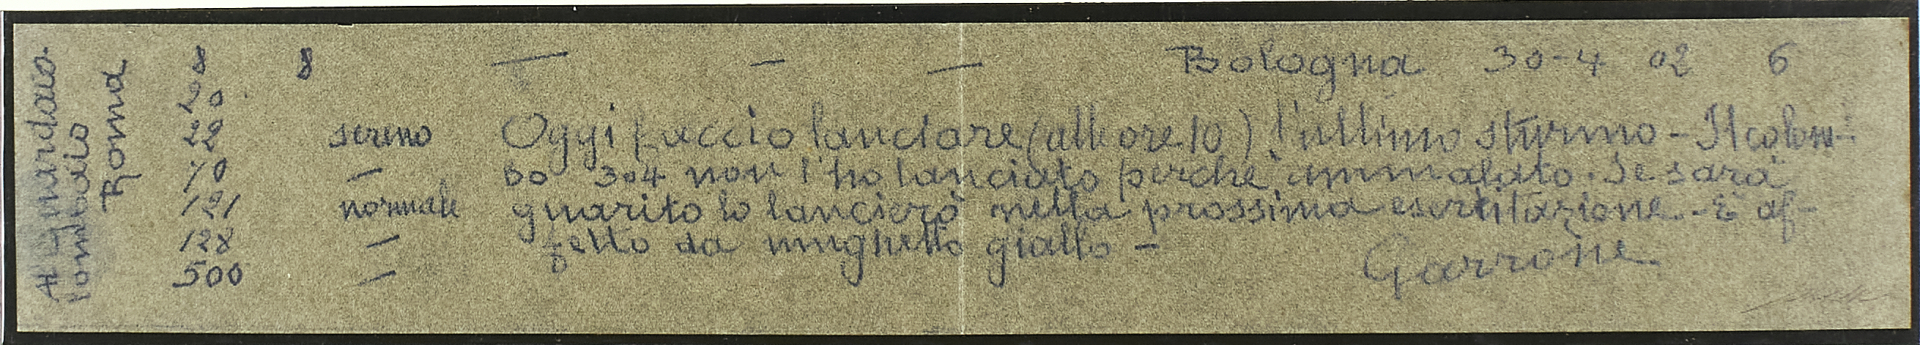 Roma
8 — — — Bologna 30-4 02 6
220
sereno Oggi faccio lanciare (alle ore 10) l'ultimo stormo - Il colom-
70 — bo 304 non l'ho lanciato perché ammalato. Se sarà
121 normale guarito lo lancierò nella prossima esercitazione. - È af-
128 — fetto da mughetto giallo -
500 — Garrone